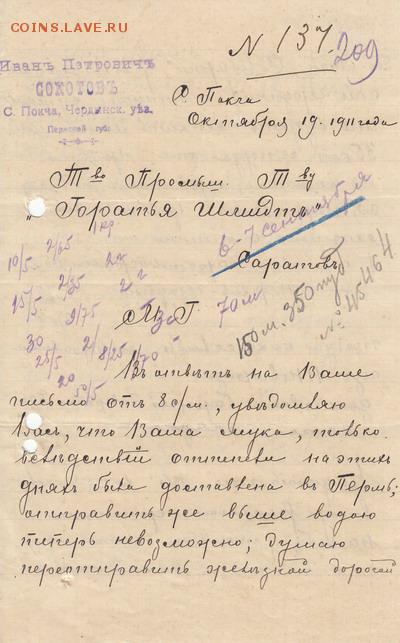 COINS.LAVE.RU
N 137. 209
Иванъ Петровичъ
СОКОТОВЪ
С. Покча, Чердынск. уѣз.
Пермской губ.
С. Покча
Октября 19. 1911 года
Т во Промышл. Т ву
"Братья Шмидтъ"
6-7 сентября
Саратовъ
1 кр
10/5 2/65 2 м
15/5 2/35 2 2
9/75
М. Г. 70 м.
150 м. 350 пуд
№ 45464
30 2/ 8/25 1/70
25/5
20 50/5
Въ отвѣтъ на Ваше
письмо отъ 8 с/м., увѣдомляю
Васъ, что Ваша мука, только
вслѣдствій оттепели на этихъ
дняхъ была доставлена въ Пермь;
отправить же выше водою
типерь невозможно; думаю
переотправить желѣзной дорогой